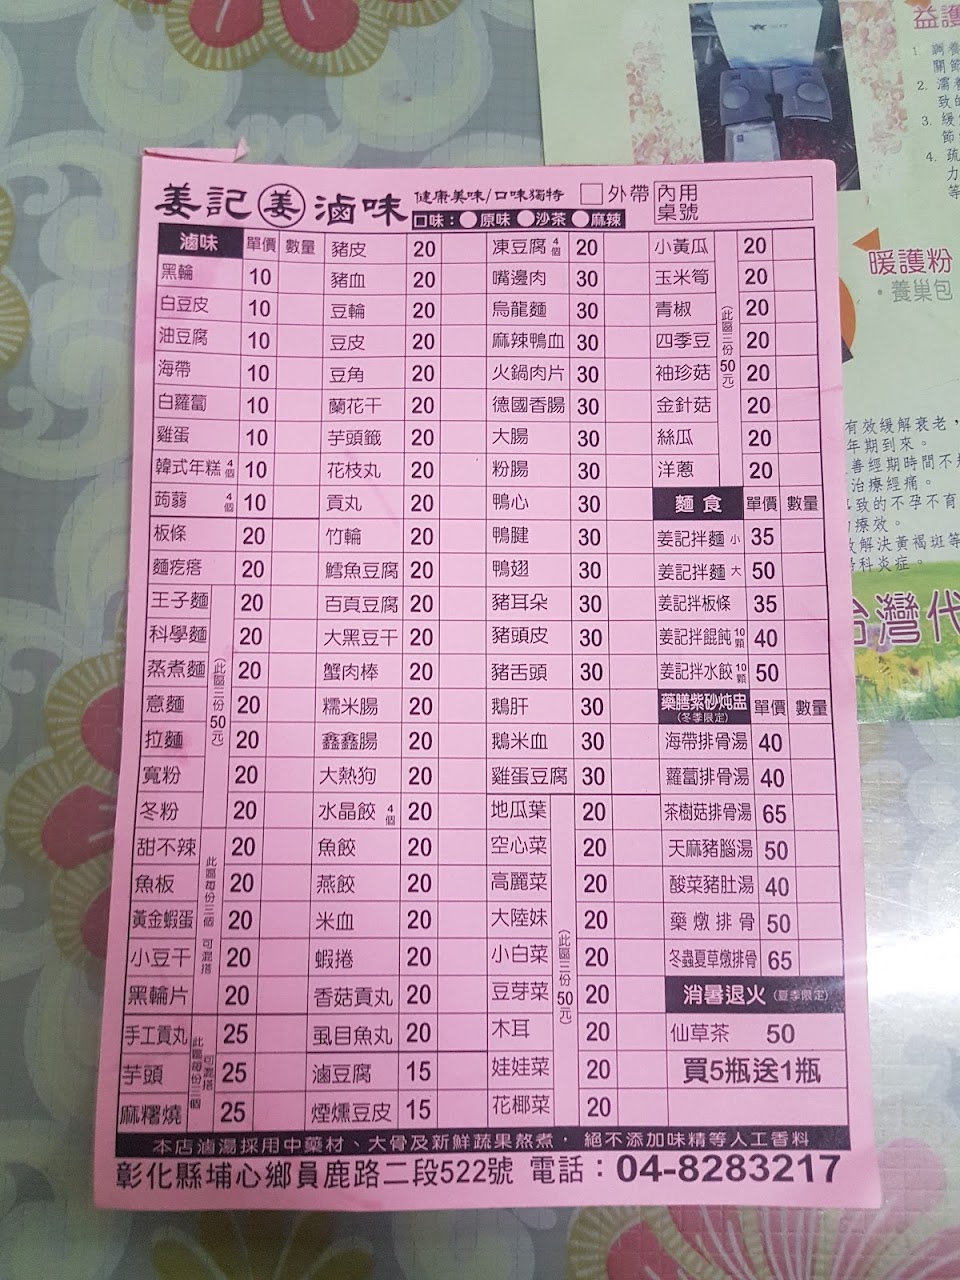 姜記 姜 滷味 健康美味/口味獨特 外帶 內用桌號
口味：原味 沙茶 麻辣
滷味 單價 數量
黑輪 10
白豆皮 10
油豆腐 10
海帶 10
白蘿蔔 10
雞蛋 10
韓式年糕 4個 10
蒟蒻 4個 10
板條 20
麵疙瘩 20
王子麵 20
科學麵 20
蒸煮麵 20
意麵 20
拉麵 20
寬粉 20
冬粉 20
(此區三份50元)
甜不辣 20
魚板 20
黃金蝦蛋 20
小豆干 20
黑輪片 20
此區每份三個 可混搭
手工貢丸 25
芋頭 25
麻糬燒 25
此區每份三個 可混搭
豬皮 20
豬血 20
豆輪 20
豆皮 20
豆角 20
蘭花干 20
芋頭籤 20
花枝丸 20
貢丸 20
竹輪 20
鱈魚豆腐 20
百頁豆腐 20
大黑豆干 20
蟹肉棒 20
糯米腸 20
鑫鑫腸 20
大熱狗 20
水晶餃 4個 20
魚餃 20
燕餃 20
米血 20
蝦捲 20
香菇貢丸 20
虱目魚丸 20
滷豆腐 15
煙燻豆皮 15
凍豆腐 4個 20
嘴邊肉 30
烏龍麵 30
麻辣鴨血 30
火鍋肉片 30
德國香腸 30
大腸 30
粉腸 30
鴨心 30
鴨腱 30
鴨翅 30
豬耳朵 30
豬頭皮 30
豬舌頭 30
鵝肝 30
鵝米血 30
雞蛋豆腐 30
地瓜葉 20
空心菜 20
高麗菜 20
大陸妹 20
小白菜 20
豆芽菜 20
木耳 20
娃娃菜 20
花椰菜 20
(此區三份50元)
小黃瓜 20
玉米筍 20
青椒 20
四季豆 20
袖珍菇 20
金針菇 20
絲瓜 20
洋蔥 20
(此區三份50元)
麵食 單價 數量
姜記拌麵 小 35
姜記拌麵 大 50
姜記拌板條 35
姜記拌餛飩 10顆 40
姜記拌水餃 10顆 50
藥膳紫砂炖盅 (冬季限定) 單價 數量
海帶排骨湯 40
蘿蔔排骨湯 40
茶樹菇排骨湯 65
天麻豬腦湯 50
酸菜豬肚湯 40
藥燉排骨 50
冬蟲夏草燉排骨 65
消暑退火 (夏季限定)
仙草茶 50
買5瓶送1瓶
本店滷湯採用中藥材、大骨及新鮮蔬果熬煮，絕不添加味精等人工香料
彰化縣埔心鄉員鹿路二段522號 電話：04-8283217
益護
1. 調養
關節
2. 濡養
致的
3. 緩
節
4. 疏
力
暖護粉
・養巢包
有效緩解衰老，
年期到來。
善經期時間不規
治療經痛。
致的不孕不育
療效。
解決黃褐斑等
科炎症。
台灣代